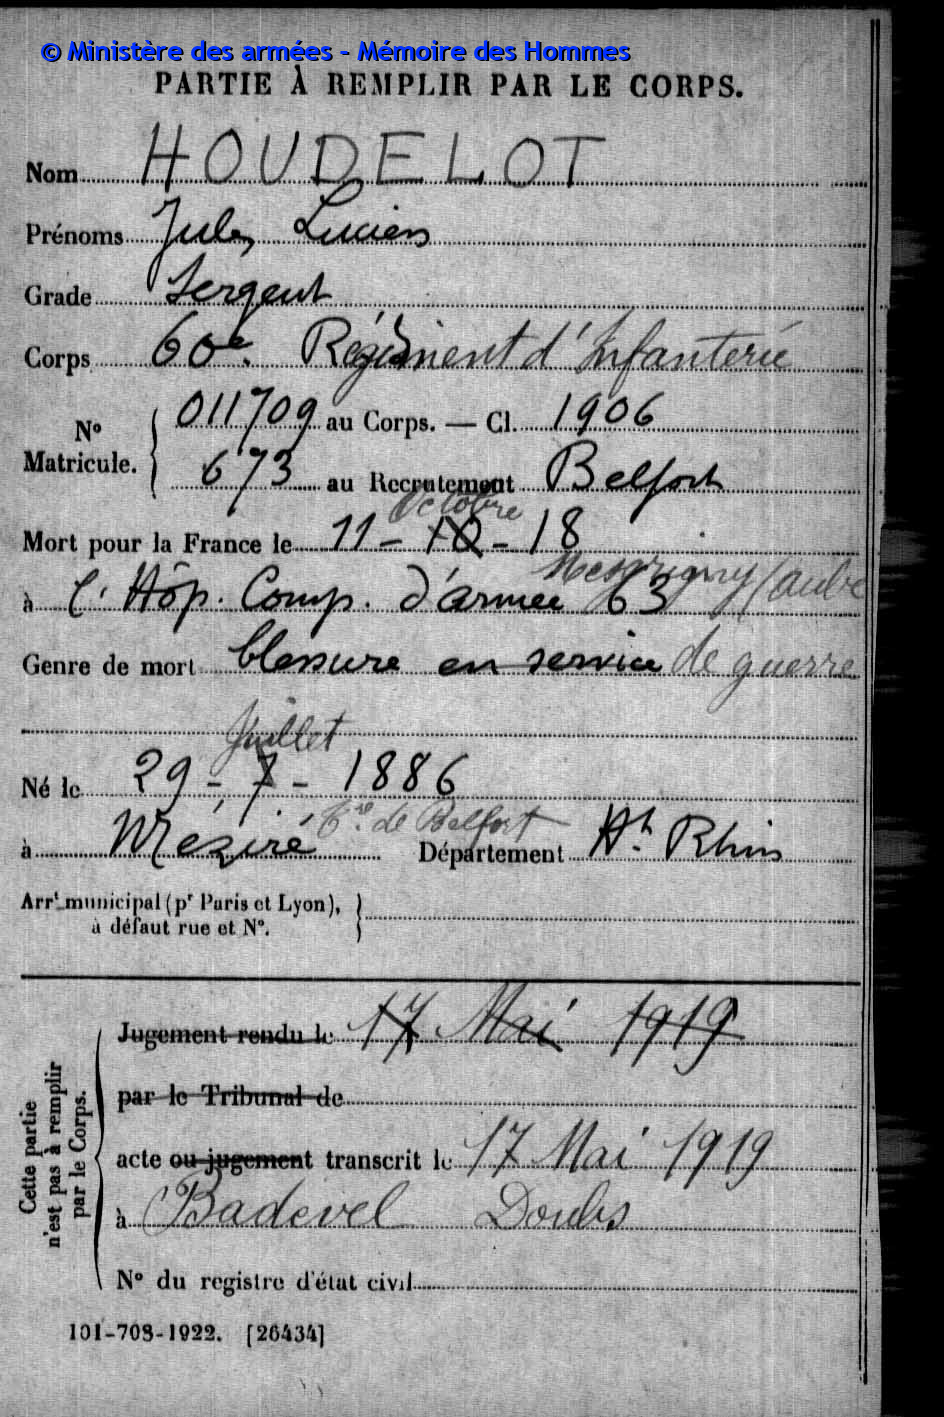 © Ministère des armées - Mémoire des Hommes
PARTIE À REMPLIR PAR LE CORPS.
Nom HOUDELOT
Prénoms Jules Lucien
Grade Sergent
Corps 60e. Régiment d'Infanterie
No Matricule. 011709 au Corps. — Cl. 1906
673 au Recrutement Belfort
Octobre
Mort pour la France le 11 - 10 - 18
Mesgrigny (Aube
à l'Hôp. Comp. d'armée 63
Genre de mort blessure en service de guerre
Juillet
Né le 29 - 7 - 1886
Tre de Belfort
à Méziré Département Ht Rhin
Arrt municipal (pr Paris et Lyon),
à défaut rue et No.
Cette partie n'est pas à remplir par le Corps.
Jugement rendu le 17 Mai 1919
par le Tribunal de
acte ou jugement transcrit le 17 Mai 1919
à Badevel Doubs
No du registre d'état civil
101-708-1922. [26434]